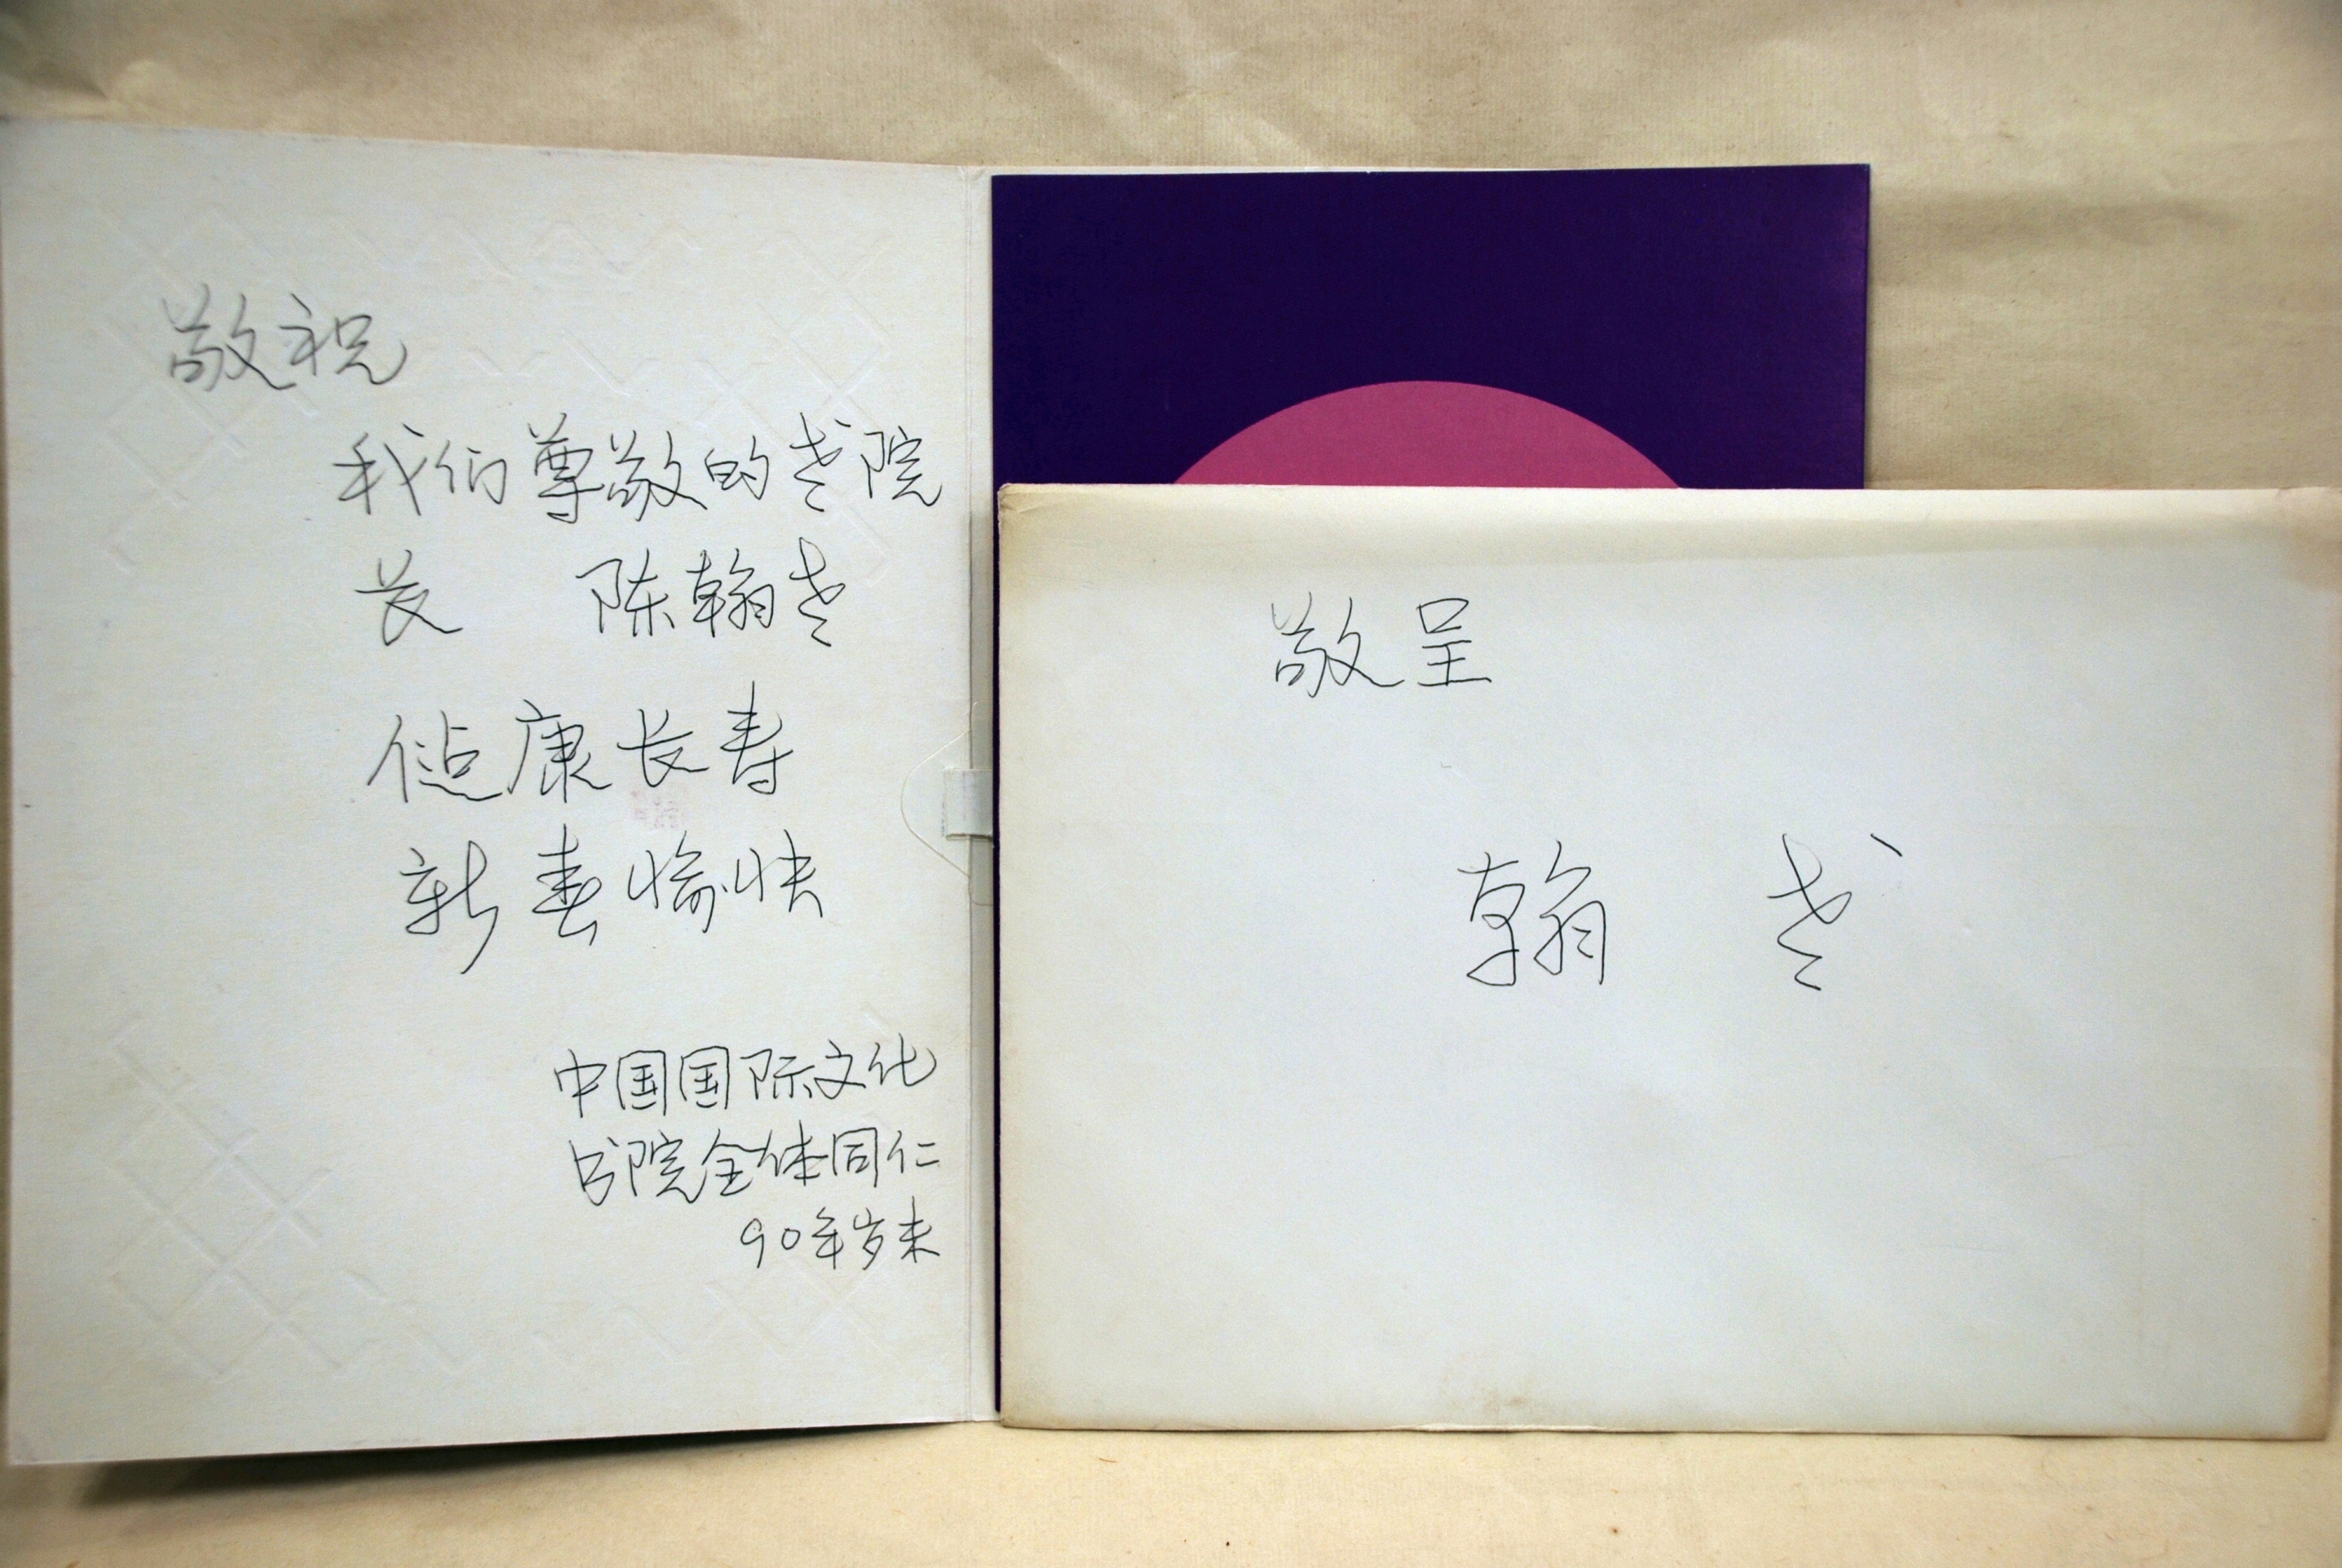 敬祝
我们尊敬的老院
长 陈翰老
健康长寿
新春愉快
中国国际文化
书院全体同仁
90年岁末
敬呈
翰 老